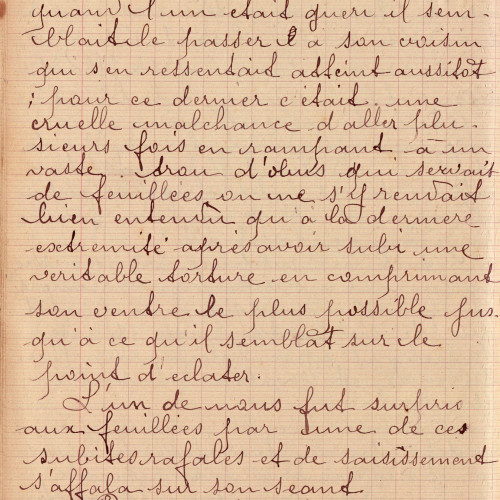 quand l'un était guéri il sem-
blait le passer à son voisin
qui s'en ressentait atteint aussitôt
; pour ce dernier c'était, une
cruelle malchance d'aller plu-
sieurs fois en rampant à un
vaste, trou d'obus qui servait
de feuillées on ne s'y rendait
bien entendu qu'à la dernière
extremité après avoir subi une
veritable torture en comprimant
son ventre le plus possible jus-
qu'à ce qu'il semblât sur le
point d'eclater.
L'un de nous fut surpris
aux feuillées par une de ces
subites rafales et de saisissement
s'affala sur son séant